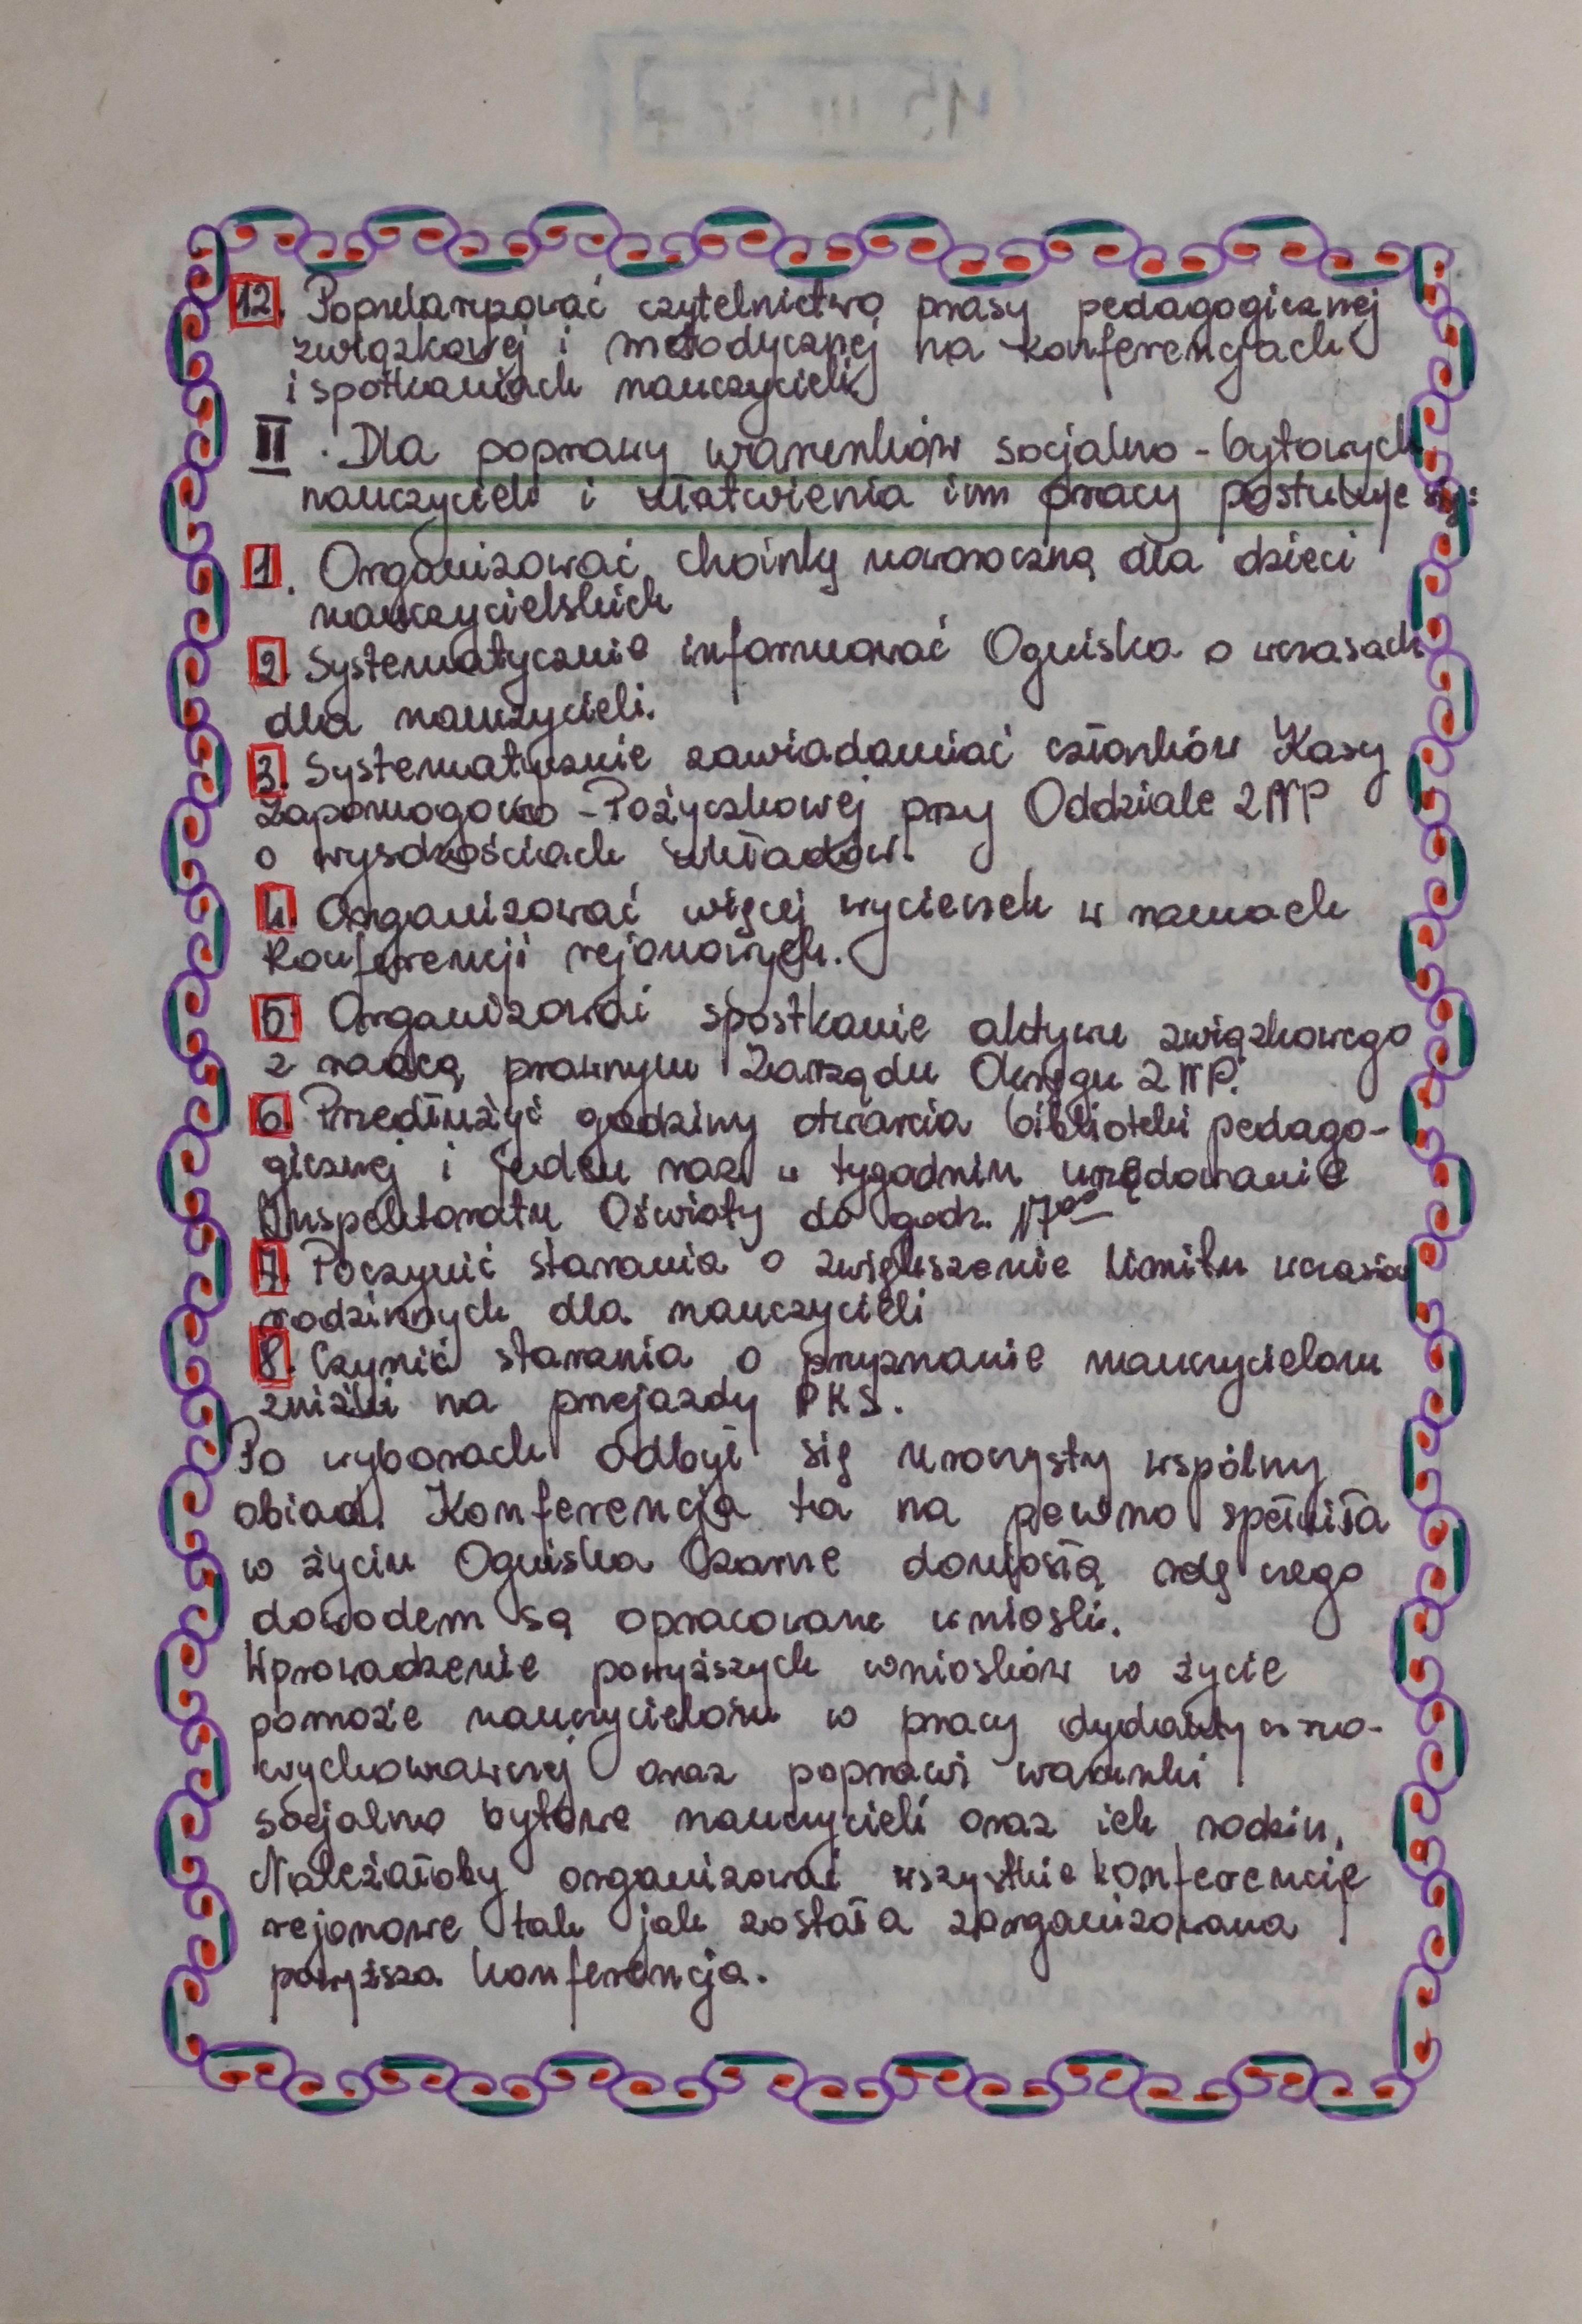 12. Popularyzować czytelnictwo prasy pedagogicznej
związkowej i metodycznej na konferencjach
i spotkaniach nauczycieli
II. Dla poprawy warunków socjalno-bytowych
nauczycieli i ułatwienia im pracy postuluje się:
1. Organizować choinkę noworoczną dla dzieci
nauczycielskich
2. Systematycznie informować Ogniska o wczasach
dla nauczycieli.
3. Systematycznie zawiadamiać członków Kasy
Zapomogowo-Pożyczkowej przy Oddziale ZNP
o wysokościach wkładów.
4. Organizować więcej wycieczek w ramach
Konferencji rejonowych.
5. Organizować spostkanie aktywu związkowego
z radcą prawnym Zarządu Okręgu ZNP.
6. Przedłużyć godziny otwarcia biblioteki pedago-
gicznej i jeden raz w tygodniu urzędowanie
Inspektoratu Oświaty do godz. 17⁰⁰
7. Poczynić starania o zwiększenie limitu wczasów
rodzinnych dla nauczycieli
8. Czynić starania o przyznanie nauczycielom
zniżki na przejazdy PKS.
Po wyborach odbył się uroczysty wspólny
obiad. Konferencja ta na pewno spełniła
w życiu Ogniska Czarne doniosłą rolę czego
dowodem są opracowane wnioski.
Wprowadzenie powyższych wniosków w życie
pomoże nauczycielom w pracy dydaktyczno-
wychowawczej oraz poprawi warunki
socjalno bytowe nauczycieli oraz ich rodzin.
Należałoby organizować wszystkie konferencje
rejonowe tak jak została zorganizowana
powyższa konferencja.